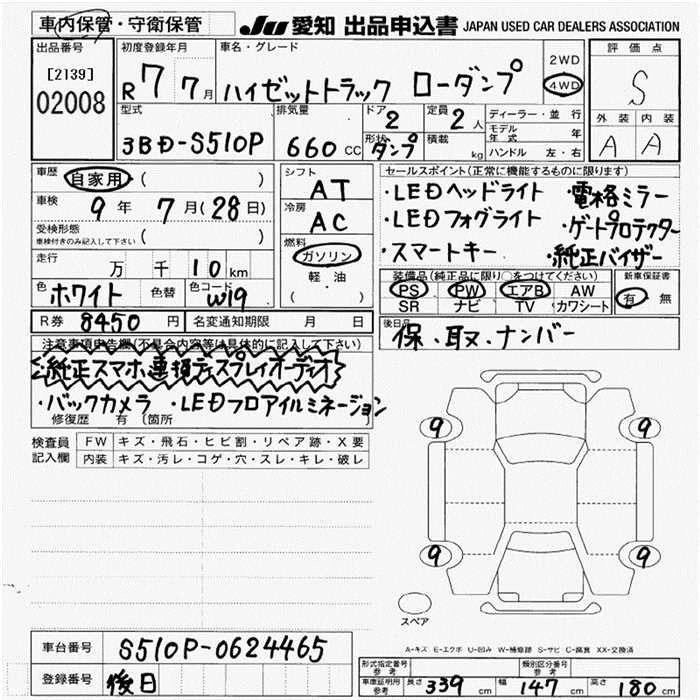 車内保管・守衛保管 JU 愛知 出品申込書 JAPAN USED CAR DEALERS ASSOCIATION
出品番号 初度登録年月 車名・グレード 2WD 評価点
[2139] R7 7月 ハイゼットトラック ローダンプ 4WD S
02008
型式 排気量 ドア 定員 ディーラー・並行 外装 内装
3BD-S510P 660 cc 2 2人 モデル年式 年 A A
形状 ダンプ 積載 kg ハンドル 左・右
車歴 自家用 ( ) シフト AT セールスポイント(正常に機能するものに限ります)
車検 9年 7月(28日) 冷房 AC ・LEDヘッドライト ・電格ミラー
受検形態 車検付きのみ記入して下さい ( ) ・LEDフォグライト ・ゲートプロテクター
燃料 ガソリン ・スマートキー ・純正バイザー
走行 万 千 10 km 軽・油 装備品(純正品に限り○をつけてください) 新車保証書
色 ホワイト 色替 色コード W19 ( ) PS PW エアB AW 有 無
SR ナビ TV カワシート
R券 8450 円 名変通知期限 月 日 後日品
保、取、ナンバー
注意事項申告欄(不具合内容等は具体的に記入して下さい)
純正スマホ連損ディスプレイオーディオ
・バックカメラ ・LEDフロアイルミネーション
修復歴 有 (箇所
検査員記入欄 FW キズ・飛石・ヒビ割・リペア跡・X要
内装 キズ・汚レ・コゲ・穴・スレ・キレ・破レ
9 9
9 9
スペア
A-キズ E-エクボ U-凹み W-補修跡 S-サビ C-腐食 XX-交換済
車台番号 S510P-0624465
形式指定番号 参考 類別区分番号 参考
登録番号 後日 車庫証明用 参考 長さ 339 cm 幅 147 cm 高さ 180 cm